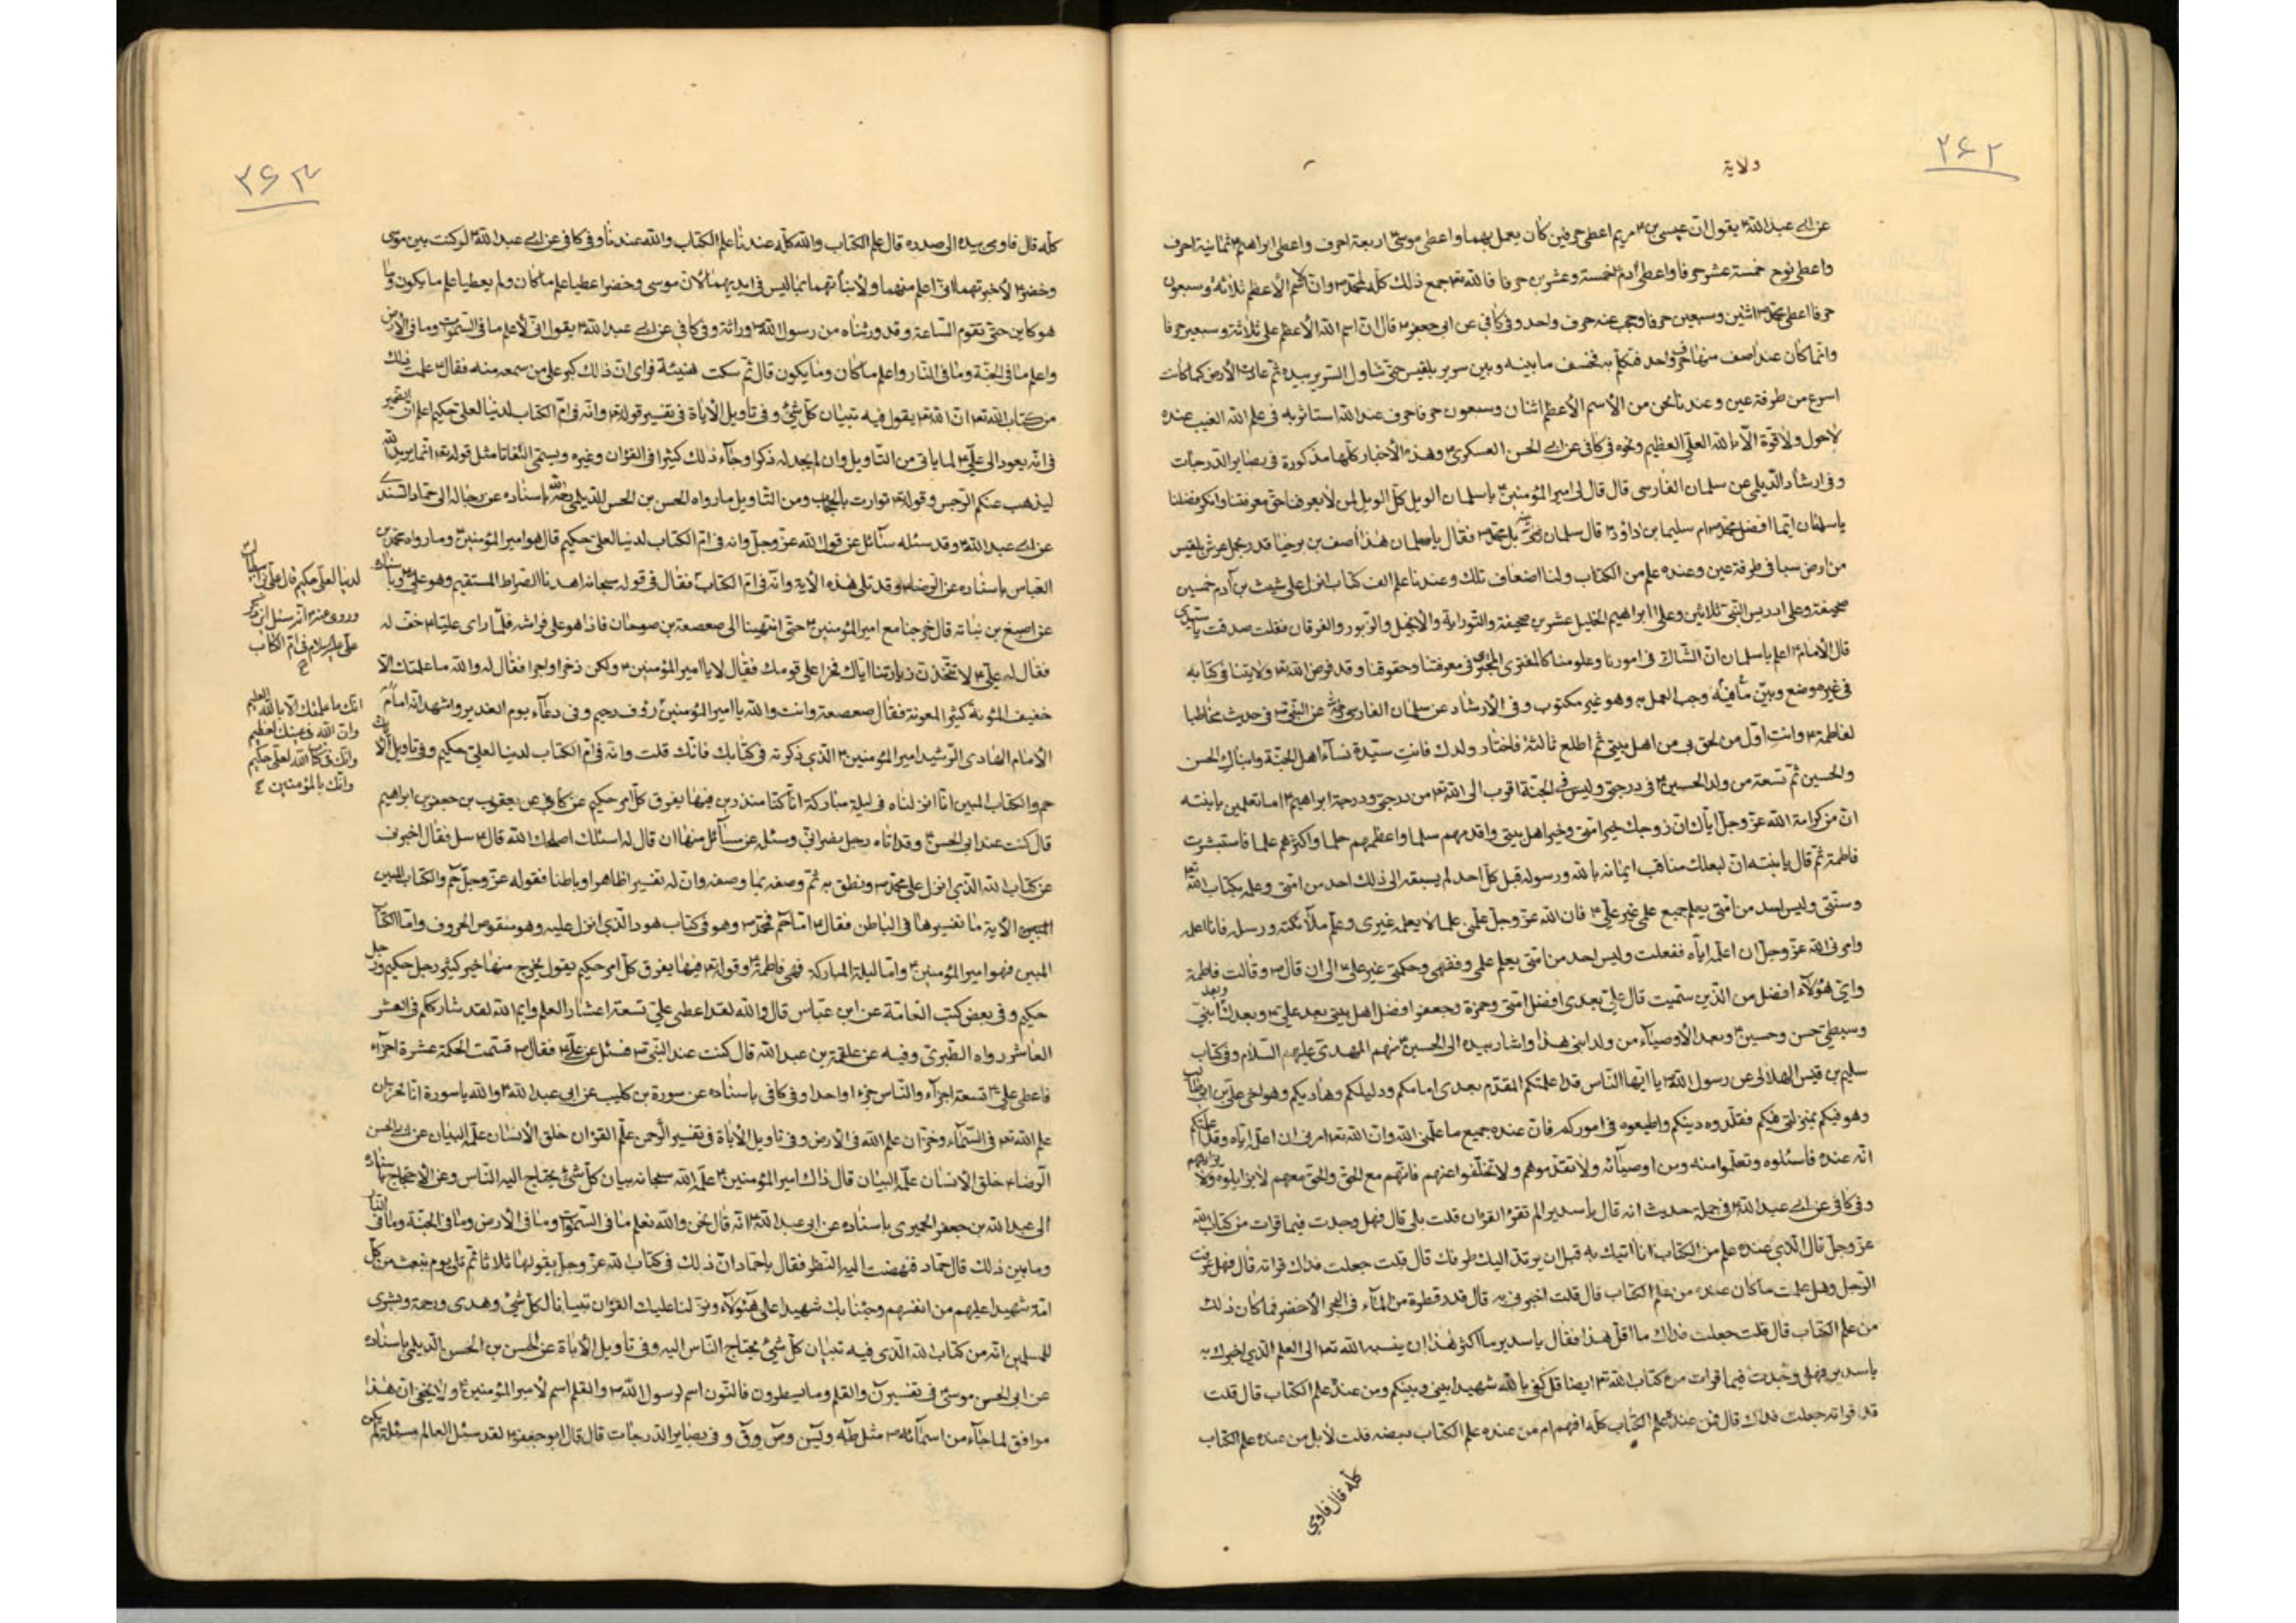 ۲۶۲
ولاية
عن ابى عبدالله ع يقول ان عيسى بن مريم ع اعطى حرفين كان يعمل بهما واعطى موسى ع اربعة احرف واعطى ابراهيم ع ثمانية احرف
واعطى نوح خمسة عشر حرفا واعطى آدم ع خمسة وعشرين حرفا فالله تع جمع ذلك كله لمحمد ص وان اسم الأعظم ثلاثة وسبعون
حرفا اعطى محمد ص اثنين وسبعين حرفا وحجب عنه حرف واحد وفى كافى عن ابى جعفر ع قال ان اسم الله الأعظم على ثلاثة وسبعين حرفا
وانما كان عند اصف منها حرف واحد فتكلم به فخسف ما بينه وبين سرير بلقيس حتى تناول السرير بيده ثم عادت الأرض كما كانت
اسرع من طرفة عين وعندنا نحن من الأسم الأعظم اثنان وسبعون حرفا حرف عند الله استأثر به فى علم الغيب عنده
لاحول ولا قوة الا بالله العلى العظيم ونحوه فى كافى عن ابى الحسن العسكرى ع وهذه الأخبار كلها مذكورة فى بصاير الدرجات
وفى ارشاد الديلمى عن سلمان الفارسى قال قال لى امير المؤمنين ع يا سلمان الويل كل الويل لمن لا يعرفنا حق معرفتنا وانكر فضلنا
يا سلمان ايما افضل محمد ص ام سليمان بن داود ع قال سلمان بل محمد ص فقال يا سلمان هذا آصف بن برخيا قدر يحمل عرش بلقيس
من ارض سبا فى طرفة عين وعنده علم من الكتاب ولنا اضعاف تلك وعندنا علم الف كتاب انزل على شيث بن آدم خمسين
صحيفة وعلى ادريس النبى ثلاثين وعلى ابراهيم الخليل عشرين صحيفة والتوراية والأنجيل والزبور والفرقان فقلت صدقت يا سيدى
قال الأمام ع اعلم يا سلمان ان الشاك فى امورنا وعلومنا كالممترى فى معرفتنا وحقوقنا وقد فرض الله تع ولايتنا فى كتابه
فى غير موضع وبين ما فيه وجب العمل به وهو غير مكتوب وفى الأرشاد عن سلمان الفارسى عن النبى ص فى حديث مخاطبا
لفاطمة ع وانت اول من لحق بى من اهل بيتى ثم اطلع ثالثة فاختار ولدك فانت سيدة نساء اهل الجنة وابناك الحسن
والحسين ثم تسعة من ولد الحسين ع فى درجتى وليس فى الجنة اقرب الى الله تع من درجتى ودرجة ابراهيم ع اما تعلمين يا بنته
ان من كرامة الله عز وجل اياك ان زوجك خير امتى وخير اهل بيتى واقدمهم سلما واعظمهم حلما واكثرهم علما فاستبشرت
فاطمة ثم قال يا بنته ان لبعلك مناقب ايمانه بالله ورسوله قبل كل احد لم يسبقه الى ذلك احد من امتى وعلمه بكتاب الله تع
وسنتى وليس احد من امتى يعلم جميع علمى غير على ع فان الله عز وجل علمنى علما لا يعلمه غيرى وعلم ملائكته ورسله فانا اعلمه
وامرنى الله عز وجل ان اعلمه اياه ففعلت وليس احد من امتى يعلم علمى وفقهى وحكمتى غير على ع الى ان قال ص وقالت فاطمة
واى هؤلاء افضل من الذين سميت قال على بعدى افضل امتى وحمزة وجعفر افضل اهل بيتى بعد على ع وبعدك وبعد ابنى
وسبطى حسن وحسين ع وبعد الأوصياء من ولد ابنى هذا واشار بيده الى الحسين ع منهم المهدى عليهم السلام وفى كتاب
سليم بن قيس الهلالى عن رسول الله ص يا ايها الناس قد اعلمتكم المقدم بعدى امامكم ودليلكم وهاديكم وهو اخى على بن ابى طالب
وهو فيكم بمنزلتى فيكم فقلدوه دينكم واطيعوه فى اموركم فان عنده جميع ما علمنى الله وان الله تع امرنى ان اعلمه اياه وقد اعلمتكم
انه عنده فاسئلوه وتعلموا منه ومن اوصيائه ولا تقدموهم ولا تتخلفوا عنهم فانهم مع الحق والحق معهم لا يزايلوه ولا يزايلهم
وفى كافى عن ابى عبدالله ع فى جملة حديث انه قال يا سدير الم تقرء القران قلت بلى قال فهل وجدت فيما قرات من كتاب الله
عز وجل قال الذى عنده علم من الكتاب انا اتيك به قبل ان يرتد اليك طرفك قال قلت جعلت فداك قراته قال فهل عرفت
الرجل وهل علمت ما كان عنده من علم الكتاب قال قلت اخبرنى به قال قدر قطرة من الماء فى البحر الأخضر فما كان ذلك
من علم الكتاب قال قلت جعلت فداك ما اقل هذا فقال يا سدير ما اكثر هذا ان ينسبه الله تع الى العلم الذى اخبرك به
يا سدير فهل وجدت فيما قرات من كتاب الله تع ايضا قل كفى بالله شهيدا بينى وبينكم ومن عنده علم الكتاب قال قلت
قد قراته جعلت فداك قال فمن عنده علم الكتاب كله افهم ام من عنده علم الكتاب ببعضه قلت لا بل من عنده علم الكتاب
كله قال فاوى
۲۶۳
كله قال فاوى بيده الى صدره قال علم الكتاب والله كله عندنا علم الكتاب والله عندنا وفى كافى عن ابى عبدالله ع لو كنت بين موسى
وخضر ع لأخبرتهما انى اعلم منهما ولأنبأتهما بما ليس فى ايديهما لأن موسى وخضر اعطيا علم ما كان ولم يعطيا علم ما يكون وما
هو كاين حتى تقوم الساعة وقد ورثناه من رسول الله ص وراثة وفى كافى عن ابى عبدالله ع يقول انى لأعلم ما فى السموت وما فى الأرض
واعلم ما فى الجنة وما فى النار واعلم ما كان وما يكون قال ثم سكت هنيئة فراى ان ذلك كبر على من سمعه منه فقال ع علمت ذلك
من كتاب الله تع ان الله تع يقول فيه تبيان كل شئ وفى تاويل الأياة فى تفسير قوله تع وانه فى ام الكتاب لدينا لعلى حكيم اعلم ان الضمير
فى انه يعود الى على ع لما ياتى من التاويل وان لم يجد له ذكرا وجاء ذلك كثيرا فى القران وغيره ويسمى التفاتا مثل قوله تع انما يريد الله
ليذهب عنكم الرجس وقوله تع توارت بالحجاب ومن التاويل ما رواه الحسن بن الحسن الديلمى باسناده عن رجاله الى حماد السندى
عن ابى عبدالله ع وقد سئله سائل عن قول الله عز وجل وانه فى ام الكتاب لدينا لعلى حكيم قال هو امير المؤمنين ع وما رواه محمد بن
العباس باسناده عن الرضا ع وقد تلى هذه الأية وانه فى ام الكتاب فقال فى قوله سبحانه اهدنا الصراط المستقيم وهو على ع وباسناده
عن اصبغ بن نباته قال خرجنا مع امير المؤمنين ع حتى انتهينا الى صعصعة بن صوحان فاذا هو على فراشه فلما راى عليا ع خف له
فقال له على ع لا تتخذن زيارتنا اياك فخرا على قومك فقال لا يا امير المؤمنين ع ولكن ذخرا واجرا فقال له والله ما علمتك الا
خفيف المؤنة كثير المعونة فقال صعصعة وانت والله يا امير المؤمنين رؤف رحيم وفى دعاء يوم الغدير واشهد انه امام
الأمام الهادى الرشيد امير المؤمنين ع الذى ذكرته فى كتابك فانك قلت وانه فى ام الكتاب لدينا لعلى حكيم وفى تاويل الأيات
حم والكتاب المبين انا انزلناه فى ليلة مباركة انا كنا منذرين فيها يفرق كل امر حكيم عن كافى عن يعقوب بن جعفر بن ابراهيم
قال كنت عند ابى الحسن ع وقد اتاه رجل نصرانى وسئله عن مسائل منها ان قال له اسئلك اصلحك الله قال ع سل فقال اخبرنى
عن كتاب الله الذى انزل على محمد ص ونطق به ثم وصفه بما وصفه وان له تفسيرا ظاهرا وباطنا فقوله عز وجل حم والكتاب المبين
الأية ما تفسيرها فى الباطن فقال ع اما حم فمحمد ص وهو فى كتاب هود الذى انزل عليه وهو منقوص الحروف واما الكتاب
المبين فهو امير المؤمنين ع واما ليلة المباركة فهى فاطمة ع وقوله تع فيها يفرق كل امر حكيم يقول يخرج منها خير كثير رجل حكيم ورجل
حكيم وفى بعض كتب العامة عن ابن عباس قال والله لقد اعطى على تسعة اعشار العلم وايم الله لقد شارككم فى العشر
العاشر رواه الطبرى وفيه عن علقمة بن عبد الله قال كنت عند النبى ص فسئل عن على ع فقال ص قسمت الحكمة عشرة اجزاء
فاعطى على ع تسعة اجزاء والناس جزءا واحدا وفى كافى باسناده عن سورة بن كليب عن ابى عبدالله ع والله يا سورة انا لخزان
علم الله تع فى السماء وخزان علم الله فى الأرض وفى تاويل الأياة فى تفسير الرحمن علم القران خلق الأنسان علمه البيان عن ابى الحسن
الرضا ع خلق الأنسان علمه البيان قال ذاك امير المؤمنين ع علمه الله سبحانه بيان كل شئ يحتاج اليه الناس وعن الأحتجاج باسناده
الى عبد الله بن جعفر الحميرى باسناده عن ابى عبدالله ع انه قال نحن والله نعلم ما فى السموات وما فى الأرض وما فى الجنة وما فى النار
وما بين ذلك قال حماد فنهضت اليه النظر فقال يا حماد ان ذلك فى كتاب الله عز وجل يقولها ثلاثا ثم تلى يوم نبعث من كل
امة شهيدا عليهم من انفسهم وجئنا بك شهيدا على هؤلاء ونزلنا عليك القران تبيانا لكل شئ وهدى ورحمة وبشرى
للمسلمين انه من كتاب الله الذى فيه تبيان كل شئ يحتاج الناس اليه وفى تاويل الأياة عن الحسن بن الحسن الديلمى باسناده
عن ابى الحسن موسى ع فى تفسير ن والقلم وما يسطرون فالنون اسم لرسول الله ص والقلم اسم لأمير المؤمنين ع ولا يخفى ان هذا
موافق لما جاء من اسمائه ص مثل طه ويس وص وق وفى بصاير الدرجات قال قال ابو جعفر ع لقد سئل العالم مسئلة لم يكن
لدينا لعلى حكيم قال على بن ابى طالب
وروى عنه ع انه سئل اين ذكر
على عليه السلام فى ام الكتاب
انك ما علمتك الا بالله العليم
وان الله فى عينك لعظيم
وانك فى كتاب الله لعلى حكيم
وانك بالمؤمنين